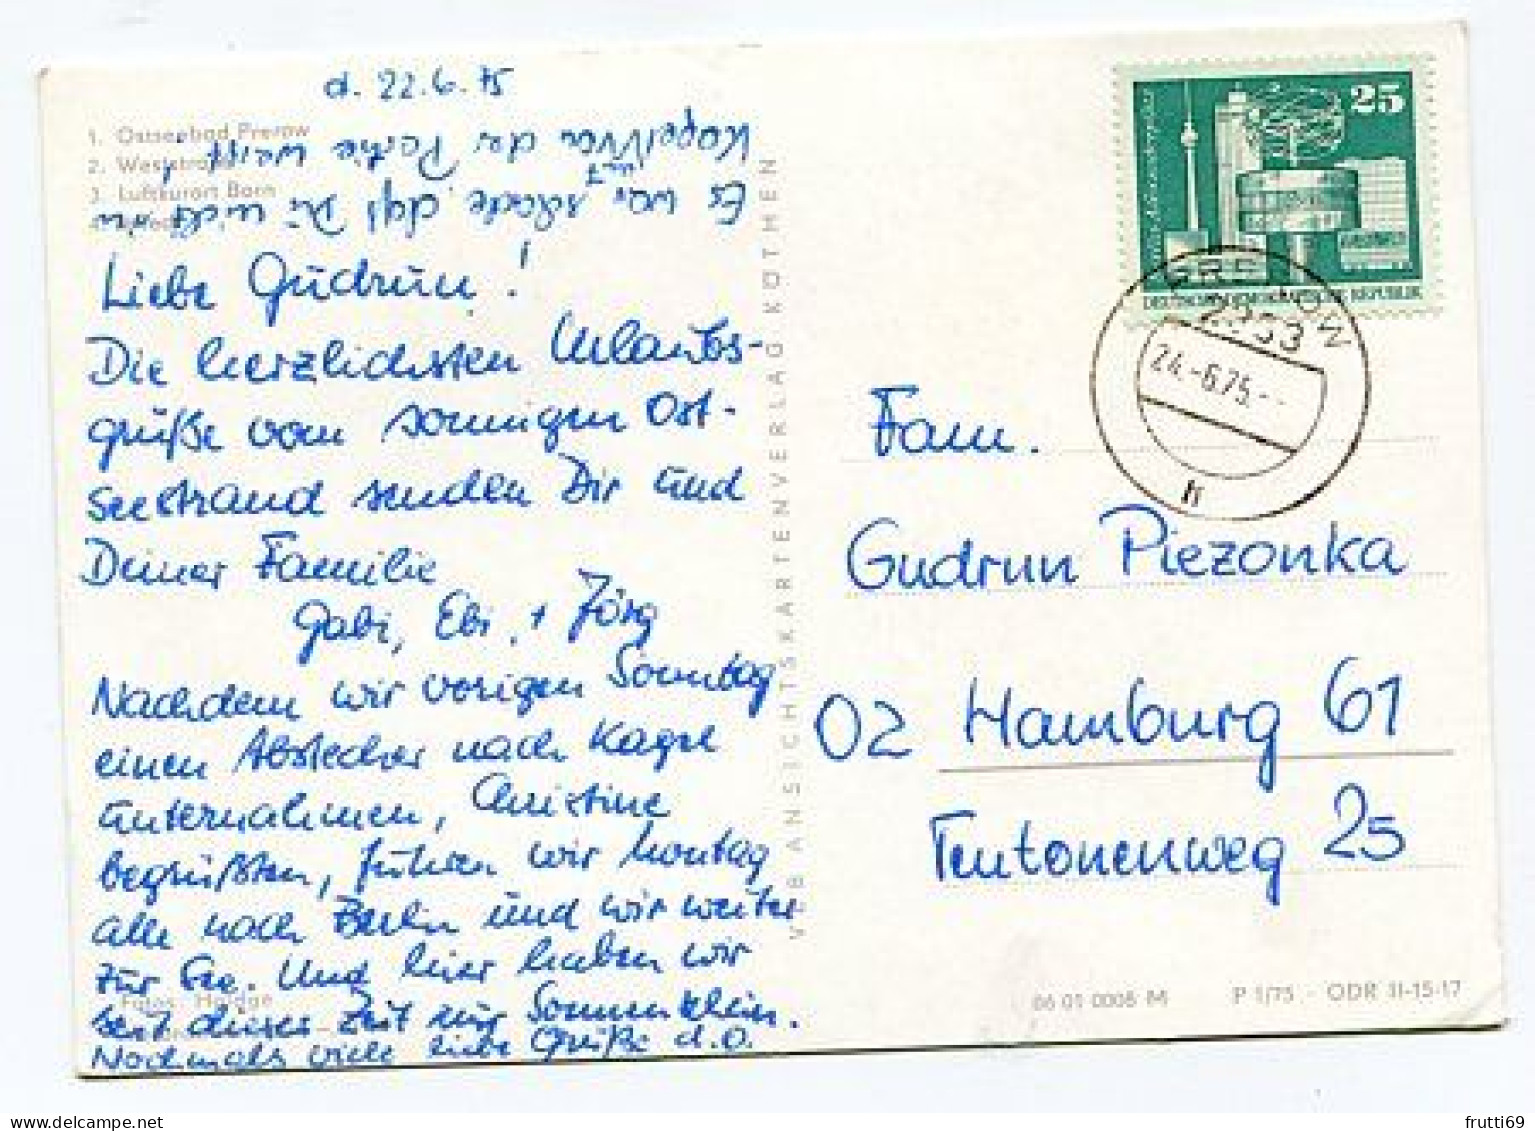 d. 22.6.75
1. Ostseebad Prerow
2. Weststrand
3. Luftkurort Born
Liebe Gudrun!
Die herzlichsten Urlaubs-
grüße vom sonnigen Ost-
seestrand senden Dir und
Deiner Familie
Gabi, Ebi, + Jörg
Nachdem wir vorigen Sonntag
einen Abstecher nach Kagel
unternahmen, Christine
begrüßten, fuhren wir Montag
alle nach Berlin und wir weiter
zur See. Und hier haben wir
seit dieser Zeit nur Sonnenschein.
Nochmals viele liebe Grüße d.O.
Es war schade, daß Du nicht in
Kagel mit von der Partie warst!
VEB ANSICHTSKARTENVERLAG KÖTHEN
25
DEUTSCHE DEMOKRATISCHE REPUBLIK
PREROW
2383
24.-6.75.--
h
Fam.
Gudrun Piezonka
02 Hamburg 61
Teutonenweg 25
06 01 0006 M P 1/75 - ODR II-15-17
frutti69